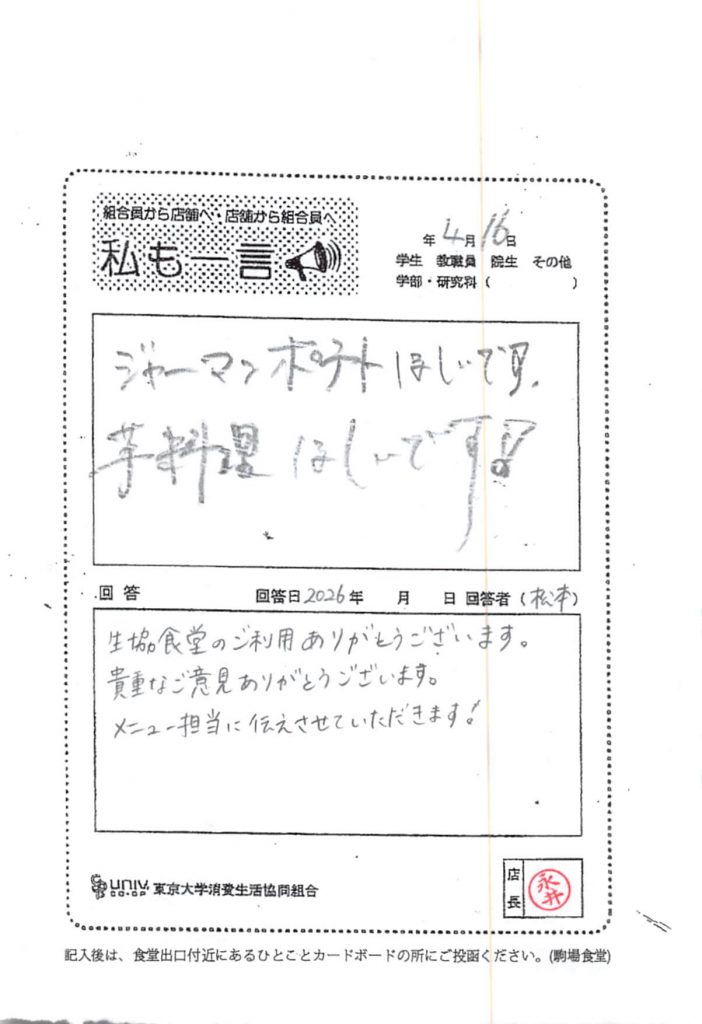 組合員から店舗へ・店舗から組合員へ
私も一言
年4月16日
学生 教職員 院生 その他
学部・研究科( )
ジャーマンポテトほしいです。
芋料理ほしいです!
回答 回答日2026年 月 日 回答者(松本)
生協食堂のご利用ありがとうございます。
貴重なご意見ありがとうございます。
メニュー担当に伝えさせていただきます!
UNIV CO-OP 東京大学消費生活協同組合
店長 永井
記入後は、食堂出口付近にあるひとことカードボードの所にご投函ください。(駒場食堂)